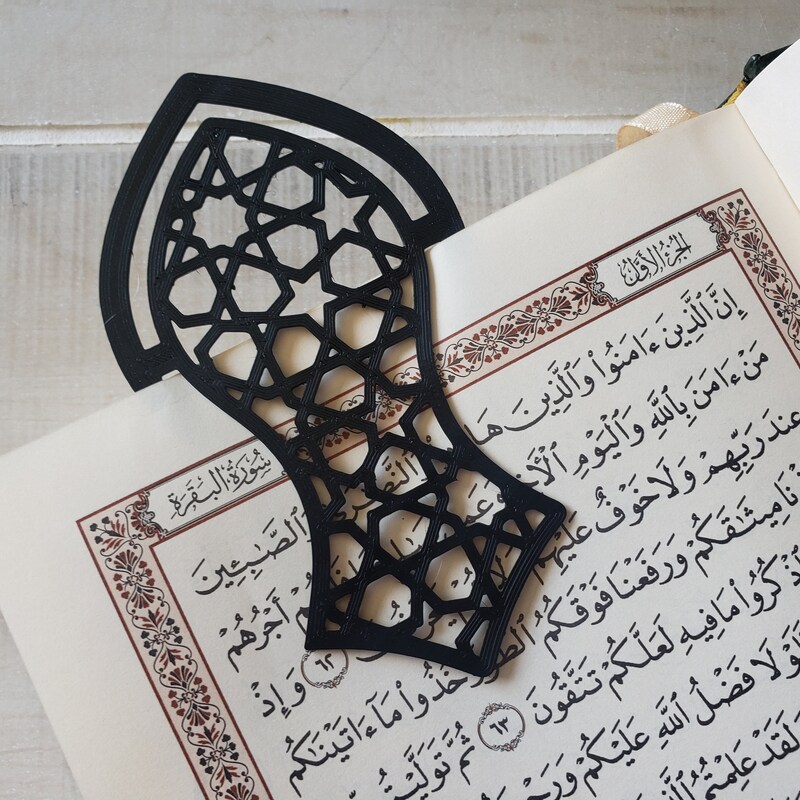 سُورَةُ البَقَرَةِ
الجُزْءُ الأَوَّلُ
إِنَّ ٱلَّذِينَ ءَامَنُوا۟ وَٱلَّذِينَ هَا ٱلنَّصَٰرَىٰ وَٱلصَّٰبِـِٔينَ
مَنْ ءَامَنَ بِٱللَّهِ وَٱلْيَوْمِ ٱلْأَخِرِ أَجْرُهُمْ
عِندَ رَبِّهِمْ وَلَا خَوْفٌ عَلَيْهِمْ ٦٢ وَإِذْ
نَا مِيثَٰقَكُمْ وَرَفَعْنَا فَوْقَكُمُ ٱلطُّورَ خُذُوا۟ مَآ ءَاتَيْنَٰكُم
ذْكُرُوا۟ مَا فِيهِ لَعَلَّكُمْ تَتَّقُونَ ٦٣ ثُمَّ تَوَلَّيْتُم
لَوْلَا فَضْلُ ٱللَّهِ عَلَيْكُمْ وَرَحْمَ
لَقَدْ عَلِمْتُمُ